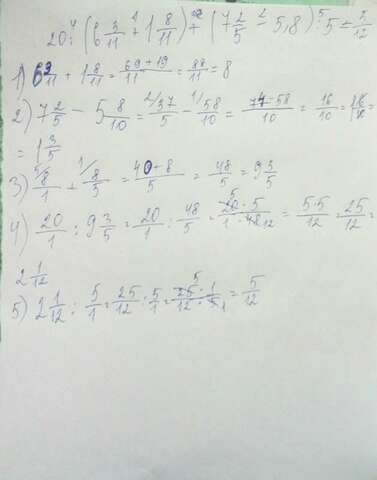 20 :⁴ (6 3/11 +¹ 1 8/11) +³ (7 2/5 -² 5,8) :⁵ 5 = 5/12
1) 6 3/11 + 1 8/11 = 69+19/11 = 88/11 = 8
2) 7 2/5 - 5 8/10 = 37/5 - 58/10 = 74-58/10 = 16/10 =
= 1 3/5
3) 8/1 + 8/5 = 40+8/5 = 48/5 = 9 3/5
4) 20/1 : 9 3/5 = 20/1 : 48/5 = 20·5/1·48 = 5·5/12 = 25/12 =
2 1/12
5) 2 1/12 : 5/1 = 25/12 : 5/1 = 25·1/12·5 = 5/12